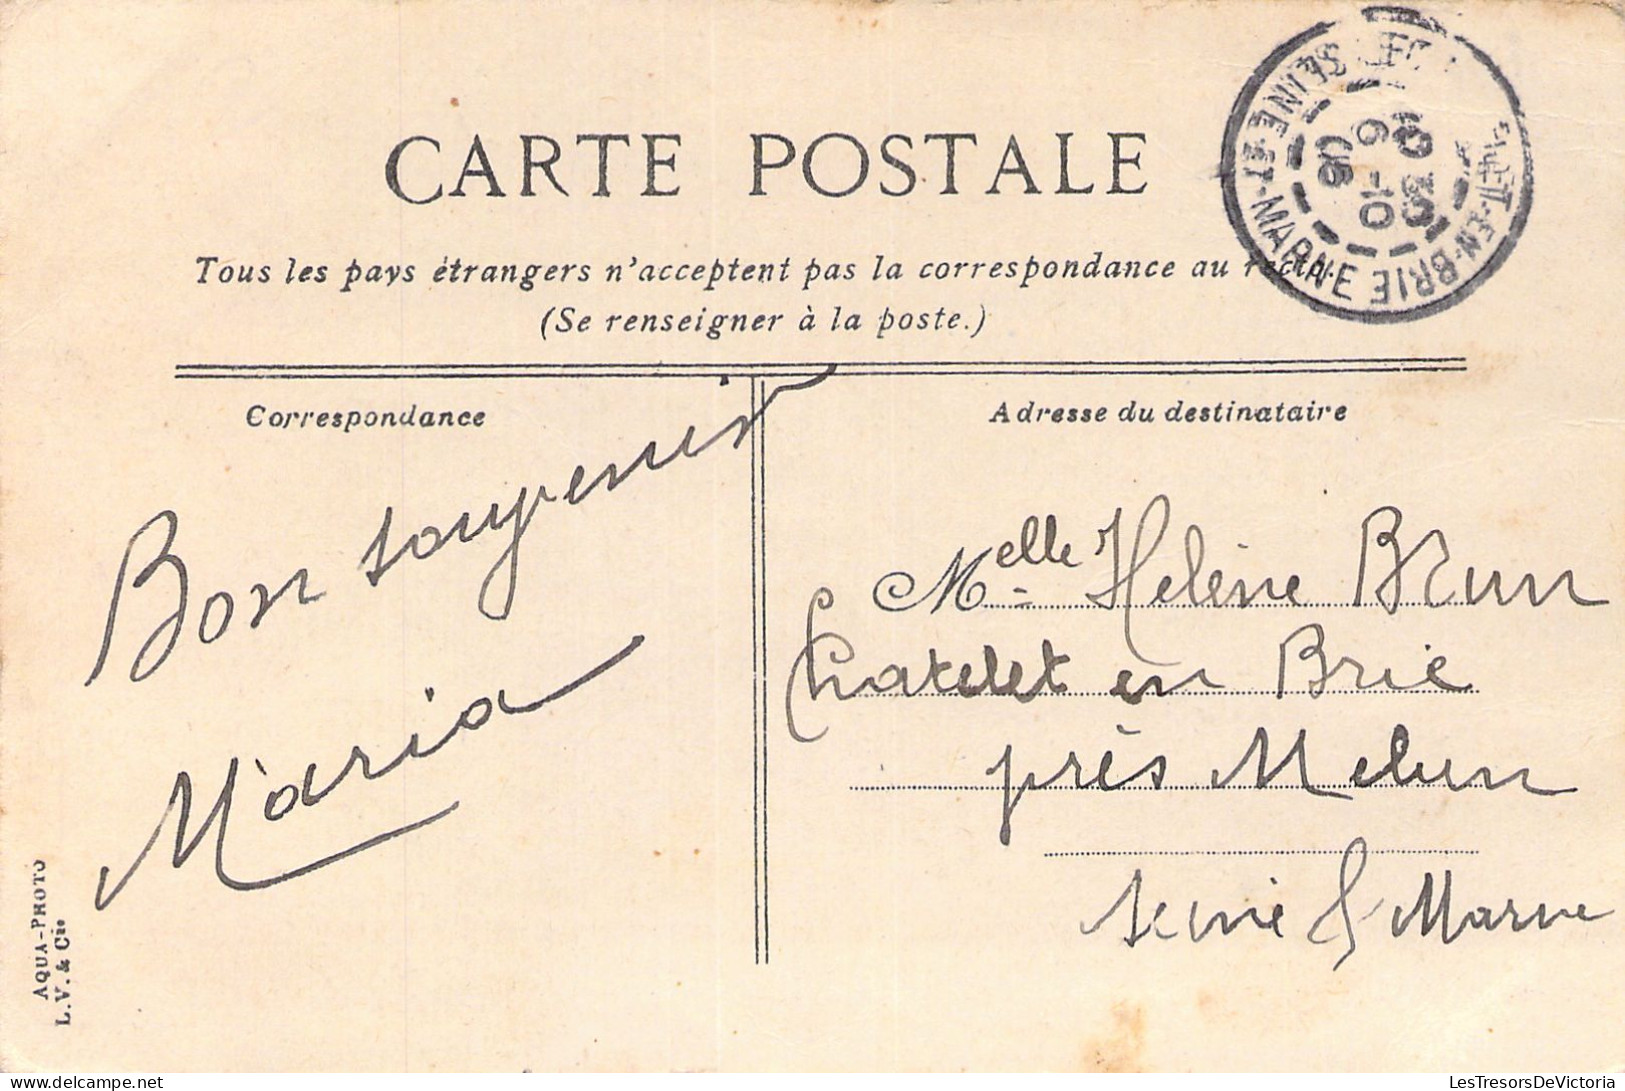 CARTE POSTALE
Tous les pays étrangers n'acceptent pas la correspondance au recto.
(Se renseigner à la poste.)
Correspondance
Bon souvenir
Maria
Adresse du destinataire
Melle Helène Brun
Chatelet en Brie
près Melun
Seine & Marne
EN-BRIE
SEINE-ET-MARNE
6 -10
05
AQUA-PHOTO
L.V. & Cie
LesTresorsDeVictoria